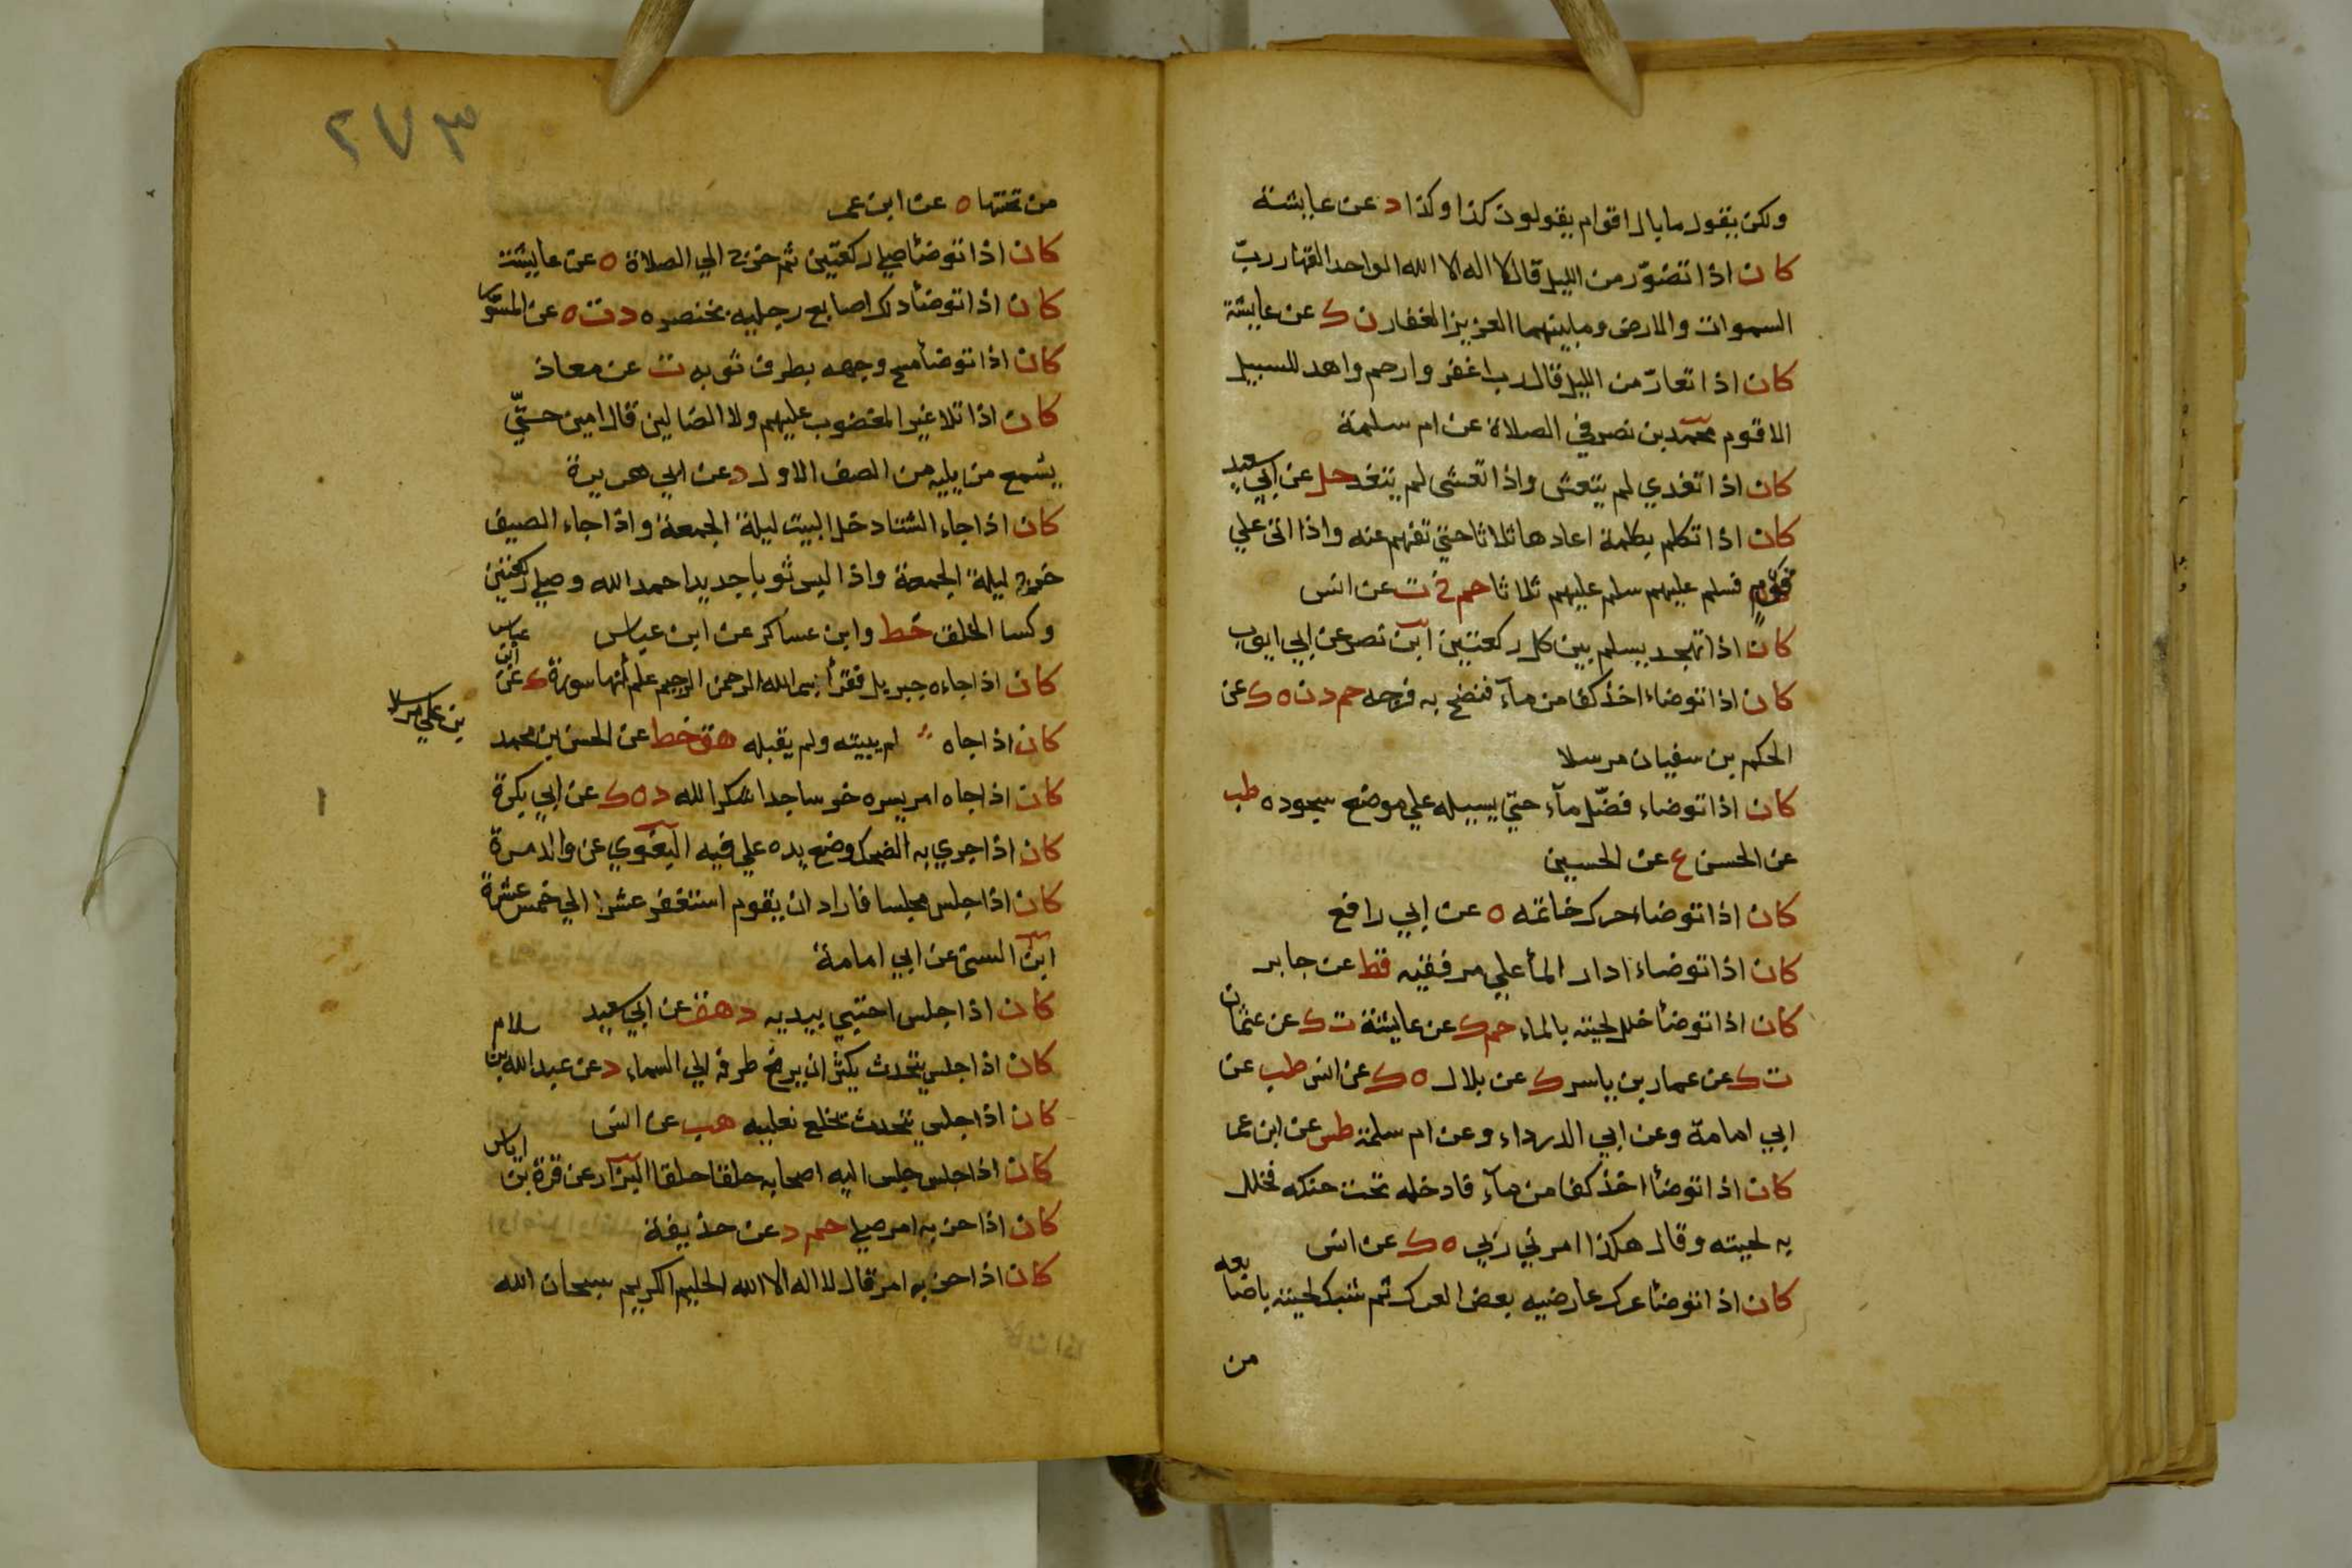 ولكن يقول ما بال اقوام يقولون كذا وكذا د عن عايشة
كان اذا تضوّر من الليل قال لا اله الا الله الواحد القهار ربّ
السموات والارض وما بينهما العزيز الغفار ن ك عن عايشة
كان اذا تعارّ من الليل قال رب اغفر وارحم واهد للسبيل
الاقوم محمد بن نصر في الصلاة عن ام سلمة
كان اذا تغدي لم يتعش واذا تعشى لم يتغد حل عن ابي سعيد
كان اذا تكلم بكلمة اعادها ثلاثا حتي تفهم عنه واذا اتى علي
قوم فسلم عليهم سلم عليهم ثلاثا حم خ ت عن انس
كان اذا تهجد يسلم بين كل ركعتين ابن نصر عن ابي ايوب
كان اذا توضاء اخذ كفا من مآء فنضح به فرجه حم د ن ه ك عن
الحكم بن سفيان مرسلا
كان اذا توضاء فضّل مآء حتي يسيله علي موضع سجوده طب
عن الحسن ع عن الحسين
كان اذا توضاء حرك خاتمه ه عن ابي رافع
كان اذا توضاء ادار المأ علي مرفقيه قط عن جابر
كان اذا توضأ خلل لحيته بالماء حم ك عن عايشة ت ك عن عثمان
ت ك عن عمار بن ياسر ك عن بلال ه ك عن انس طب عن
ابي امامة وعن ابي الدرداء وعن ام سلمة طس عن ابن عمر
كان اذا توضأ اخذ كفا من مآء فادخله تحت حنكه فخلل
به لحيته وقال هكذا امرني ربي ه ك عن انس
كان اذا توضأ عرك عارضيه بعض العرك ثم شبك لحيته باصابعه
من
٢٧٣
من تحتها ه عن ابن عمر
كان اذا توضأ صلي ركعتين ثم خرج الي الصلاة ه عن عايشة
كان اذا توضأ دلك اصابع رجليه بخنصره د ت ه عن المستورد
كان اذا توضأ مسح وجهه بطرف ثوبه ت عن معاذ
كان اذا تلا غير المغضوب عليهم ولا الضالين قال امين حتّي
يسمع من يليه من الصف الاول د عن ابي هريرة
كان اذا جاء الشتا دخل البيت ليلة الجمعة واذا جاء الصيف
خرج ليلة الجمعة واذا لبس ثوبا جديدا حمد الله وصلي ركعتين
وكسا الخلق خط وابن عساكر عن ابن عباس
كان اذا جاءه جبريل فقرأ بسم الله الرحمن الرحيم علم أنها سورة ك عن ابن عباس
كان اذا جاه لم يبيته ولم يقبله هق خط عن الحسن بن محمد بن علي مرسلا
كان اذا جاه امر يسره خر ساجدا شكرا لله د ه ك عن ابي بكرة
كان اذا جري به الضحك وضع يده علي فيه البغوي عن والد مرة
كان اذا جلس مجلسا فاراد ان يقوم استغفر عشرا الي خمس عشرة
ابن السني عن ابي امامة
كان اذا جلس احتبي بيديه د هق عن ابي سعيد
كان اذا جلس يتحدث يكثر ان يرفع طرفه الي السماء د عن عبد الله بن سلام
كان اذا جلس يتحدث تخلع نعليه هب عن انس
كان اذا جلس جلس اليه اصحابه حلقا حلقا البزار عن قرة بن اياس
كان اذا حزبه امر صلي حم د عن حذيفة
كان اذا حزبه امر قال لا اله الا الله الحليم الكريم سبحان الله